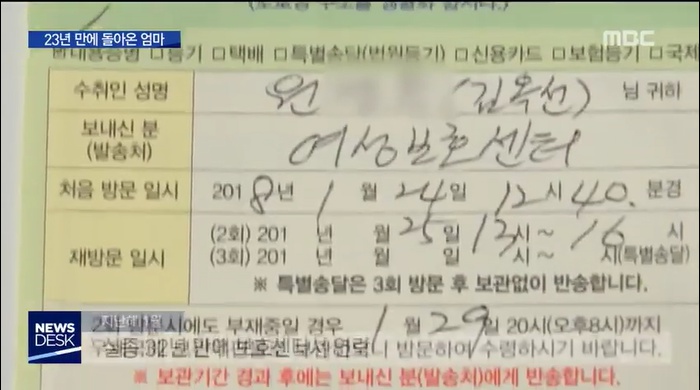 23년 만에 돌아온 엄마
MBC
내용증명 □등기 □택배 □특별송달(법원등기) □신용카드 □보험등기 □국제
수취인 성명 원 (김옥선) 님 귀하
보내신 분 (발송처) 여성보호센터
처음 방문 일시 2018년 1월 24일 12시 40.분경
재방문 일시
(2회) 201 년 월 25일 13시~ 16 시
(3회) 201 년 월 일 시~ 시(특별송달)
※ 특별송달은 3회 방문 후 보관없이 반송합니다.
시에도 부재중일 경우 1월 29일 20시(오후8시)까지
NEWS DESK
방문하여 수령하시기 바랍니다.
※ 보관기간 경과 후에는 보내신 분(발송처)에게 반송합니다.